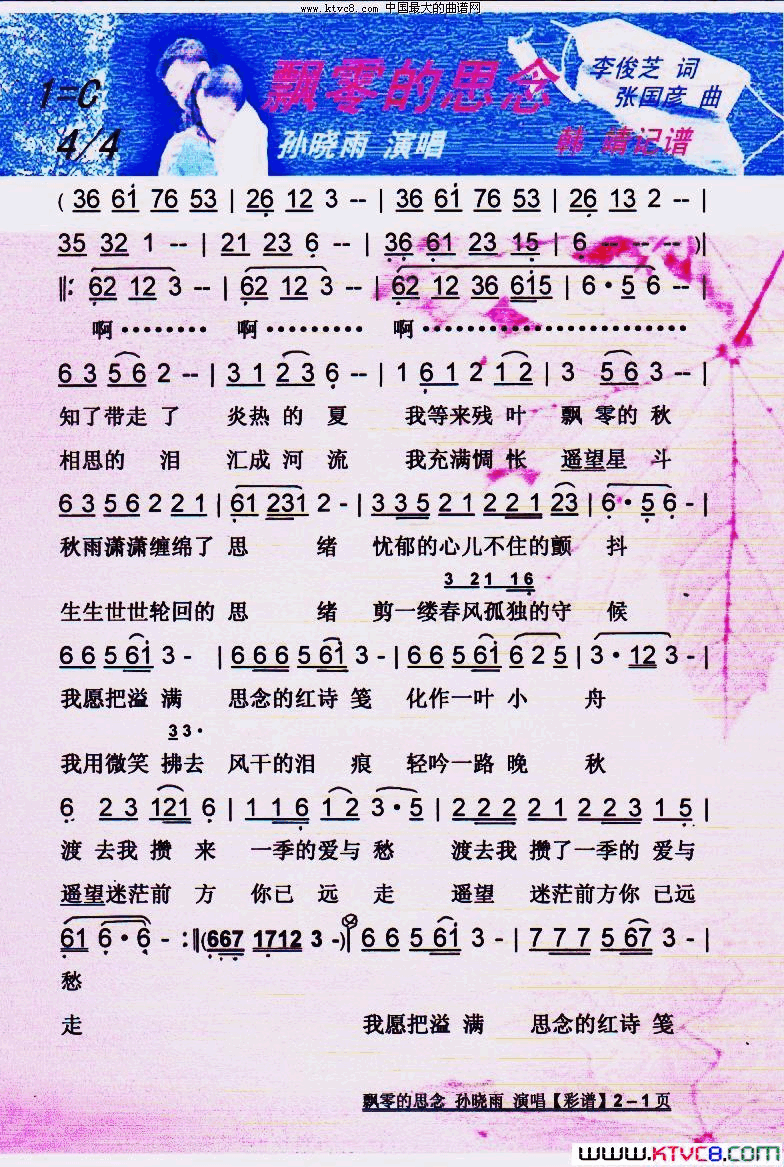 www.ktvc8.com 中国最大的曲谱网
1=C
4/4
飘零的思念
李俊芝 词
张国彦 曲
孙晓雨 演唱
韩 靖记谱
( 36 61 76 53 | 26 12 3 -- | 36 61 76 53 | 26 13 2 -- |
35 32 1 -- | 21 23 6 -- | 36 61 23 15 | 6 -- -- )|
‖: 62 12 3 -- | 62 12 3 -- | 62 12 36 615 | 6·5 6 -- |
啊········ 啊········· 啊························
6 3 5 6 2 -- | 3 1 2 3 6 -- | 1 6 1 2 1 2 | 3 5 6 3 -- |
知了带走了 炎热的夏 我等来残叶 飘零的秋
相思的泪 汇成河流 我充满惆怅 遥望星斗
6 3 5 6 2 2 1 | 61 231 2 - | 3 3 5 2 1 2 2 1 23 | 6·5 6 - |
秋雨潇潇缠绵了思 绪 忧郁的心儿不住的颤 抖
3 21 16
生生世世轮回的思 绪 剪一缕春风孤独的守 候
6 6 5 61 3 - | 6 6 6 5 61 3 - | 6 6 5 61 6 2 5 | 3·12 3 - |
我愿把溢满 思念的红诗笺 化作一叶小 舟
33·
我用微笑拂去 风干的泪 痕 轻吟一路晚 秋
6 2 3 121 6 | 1 1 6 1 2 3·5 | 2 2 2 2 1 2 2 3 1 5 |
渡去我攒来 一季的爱与愁 渡去我攒了一季的爱与
遥望迷茫前方 你已远走 遥望 迷茫前方你已远
61 6·6 - :‖(667 1712 3 -)| 6 6 5 61 3 - | 7 7 7 5 67 3 - |
愁
走 我愿把溢满 思念的红诗笺
飘零的思念 孙晓雨 演唱【彩谱】2－1页
www.KTVC8.com